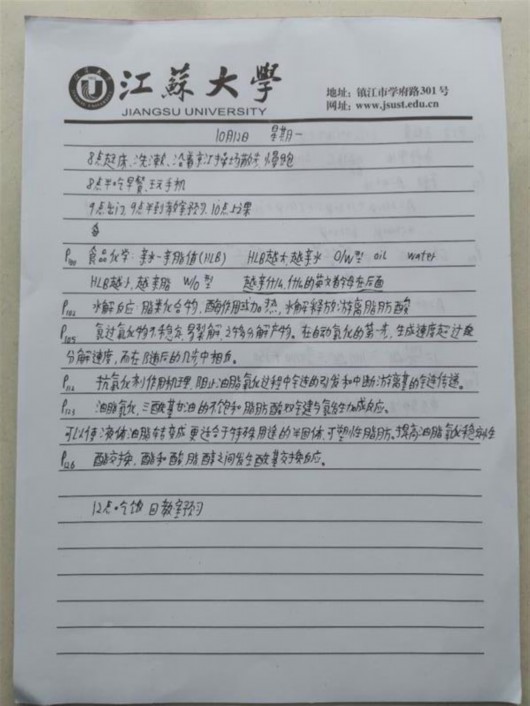 江蘇大學
JIANGSU UNIVERSITY
地址：镇江市学府路301号
网址：www.jsust.edu.cn
10月12日 星期一
8点起床、洗漱、沿着 操场 慢跑
8点半吃早餐、玩手机
9点出门，9点半到教室预习，10点上课
食品化学：亲水-亲脂值(HLB) HLB越大越亲水 O/W型 oil water
HLB越小，越亲脂 W/O型 越亲什么，什么的英文首字母在后面
水解反应：脂类化合物，酶作用或加热，水解释放游离脂肪酸
P105 氢过氧化物不稳定，易裂解，分解产物。在自动氧化的第一步，生成速度超过
分解速度，而在 反应的几步中相反。
抗氧化剂作用机理，阻止油脂氧化过程中 的引发和中断游离基的 传递。
P123 油脂氢化，三酰基甘油的不饱和脂肪酸双键与氢发生加成反应。
可以使液体油脂转变成更适合于特殊用途的半固体，可塑性脂肪。提高油脂氧化稳定性
P126 酯交换，酯和酸、脂、醇之间发生酰基交换反应。
12点 吃饭 回教室预习